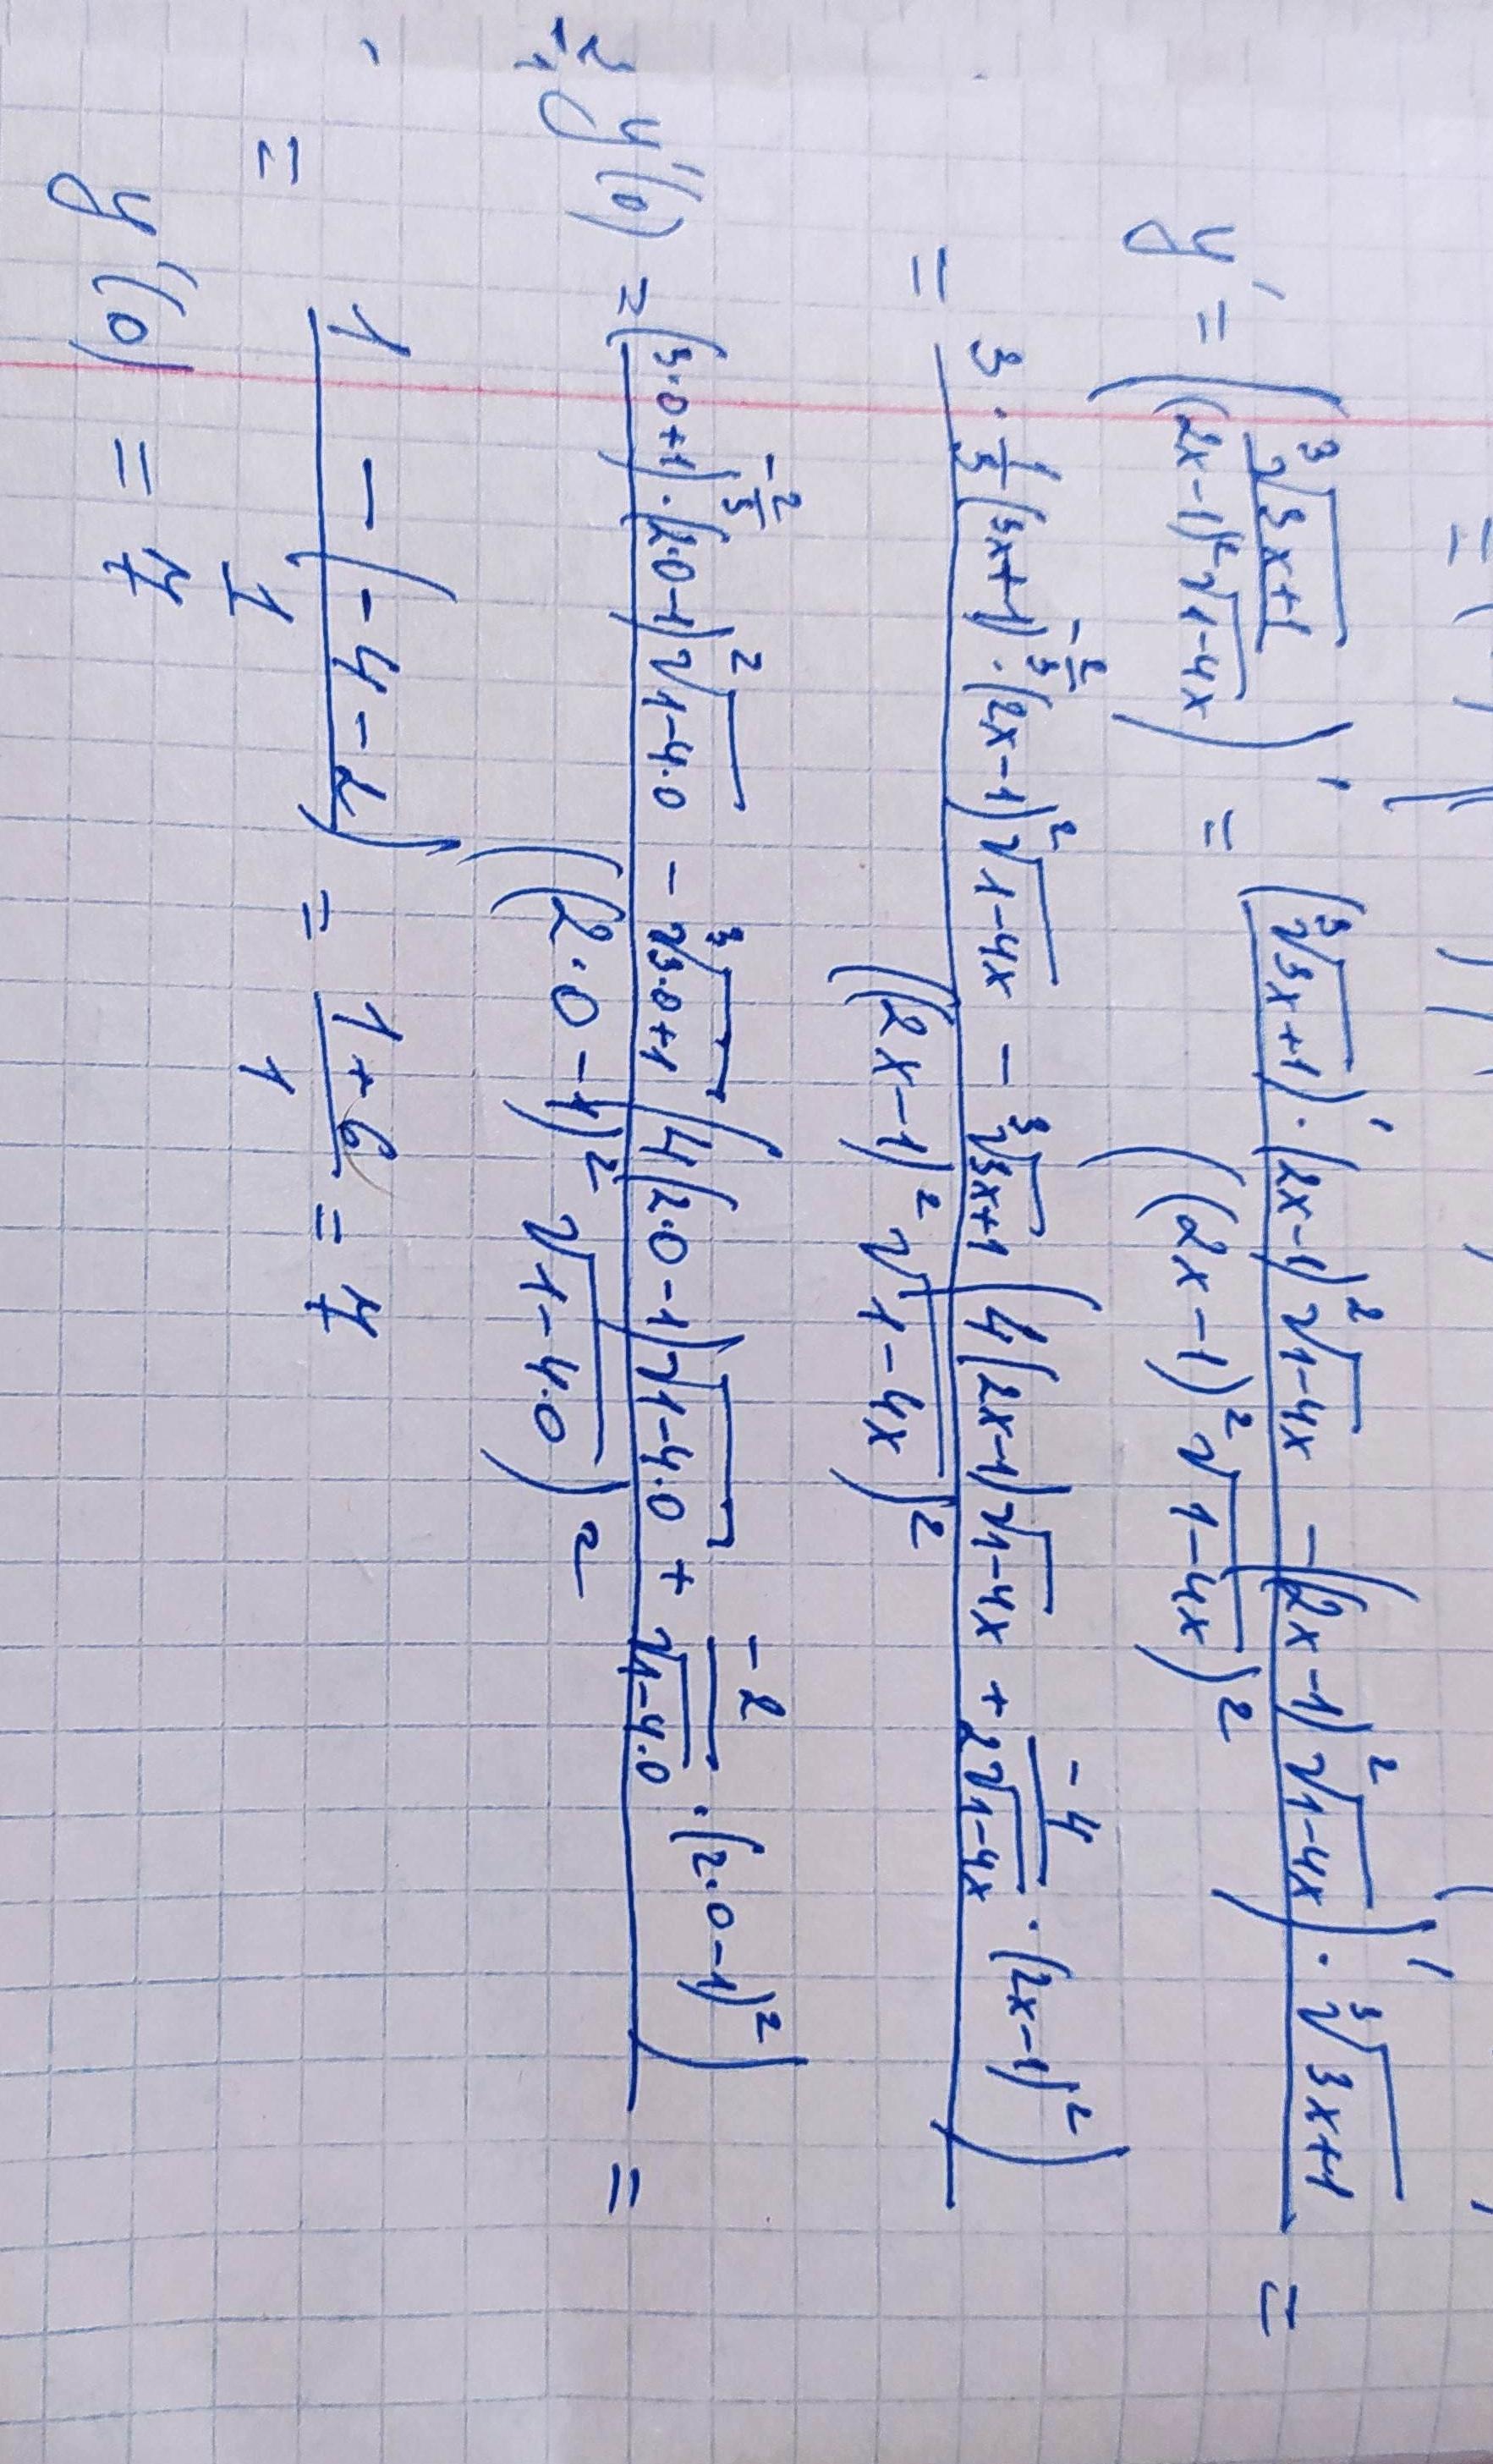 y' = (∛(3x+1) / ((2x-1)²√(1-4x)))' = ((∛(3x+1))' · (2x-1)²√(1-4x) - ((2x-1)²√(1-4x))' · ∛(3x+1)) / ((2x-1)²√(1-4x))² =
= (3 · 1/3 (3x+1)^(-2/3) · (2x-1)²√(1-4x) - ∛(3x+1) (4(2x-1)√(1-4x) + -4/(2√(1-4x)) · (2x-1)²)) / ((2x-1)²√(1-4x))²
y'(0) = ((3·0+1)^(-2/3) · (2·0-1)²√(1-4·0) - ∛(3·0+1) (4(2·0-1)√(1-4·0) + -2/√(1-4·0) · (2·0-1)²)) / ((2·0-1)²√(1-4·0))² =
= (1 - (-4-2)) / 1 = (1+6) / 1 = 7
y'(0) = 7